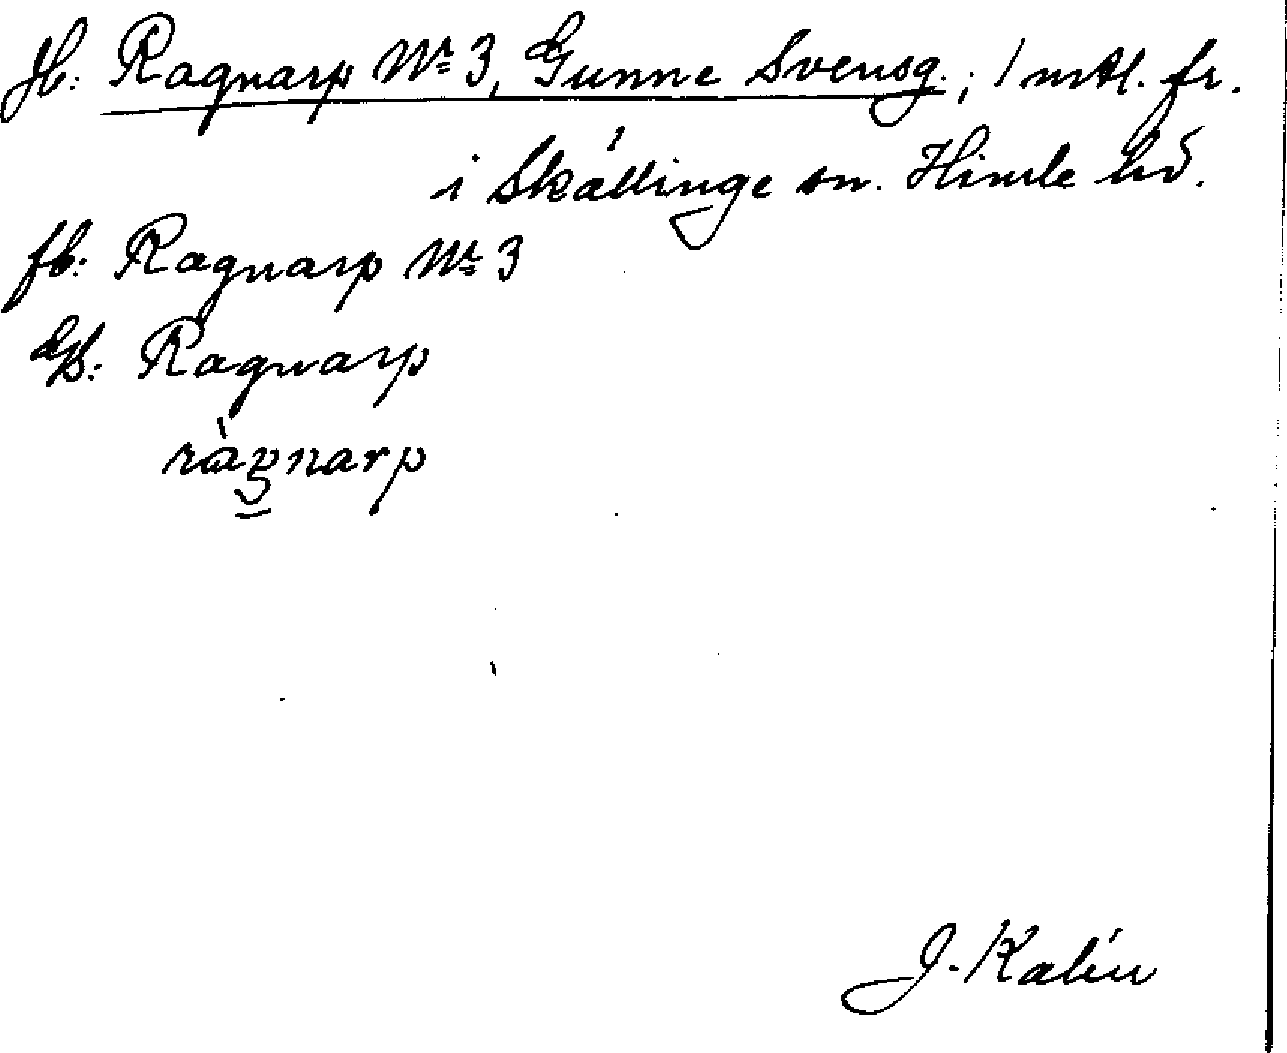 Jb: Ragnarp Nr 3, Gunne Svensg.; 1 mtl. fr.
i Skällinge sn. Himle hd.
fb: Ragnarp Nr 3
Gb: Ragnarp
ràgnarp
J. Kalén